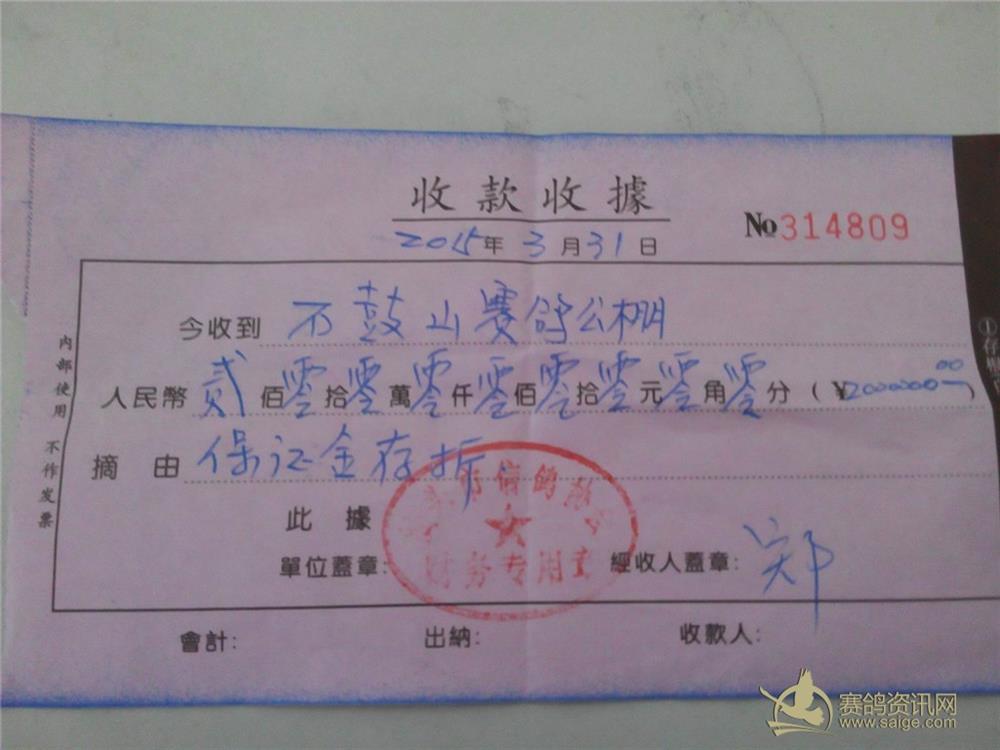 收款收據
№314809
2015年3月31日
今收到 石鼓山赛鸽公棚
人民幣 贰 佰 零 拾 零 萬 零 仟 零 佰 零 拾 零 元 零 角 零 分 (¥2000000.00)
摘由 保证金存折
此據
信鸽协会
财务专用章
單位蓋章:
經收人蓋章: 郑
會計: 出納: 收款人:
内部使用 不作发票
①存根
赛鸽资讯网
www.saige.com